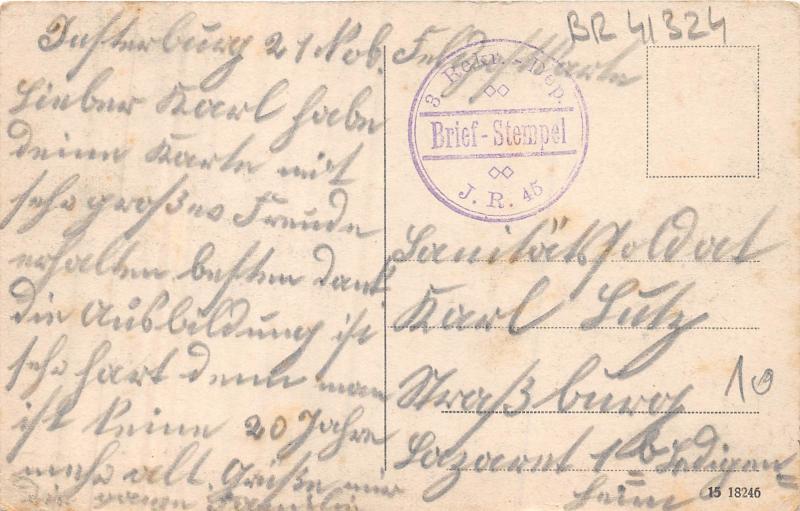 Insterburg 21 Nob.
Lieber Karl habe
deine Karte mit
sehr großer Freude
erhalten besten Dank!
die Ausbildung ist
sehr hart denn man
ist keine 20 Jahre
mehr alt. Grüße mir
die ganze Familie
Feldpostkarte
BR 41324
3. Rekr.-Dep.
Brief-Stempel
J. R. 45
Sanitätssoldat
Karl Lutz
Straßburg
Lazaret 1
heim
10
15 18246